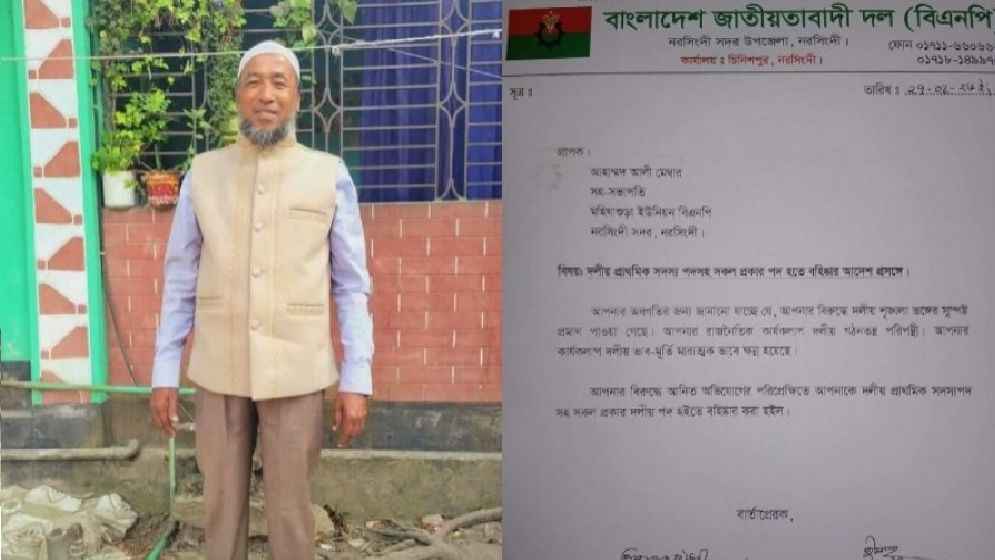 বাংলাদেশ জাতীয়তাবাদী দল (বিএনপি)
নরসিংদী সদর উপজেলা, নরসিংদী।
কার্যালয় ঃ চিনিশপুর, নরসিংদী।
ফোন ০১৭১১-৬৬০৬৬
০১৭১৮-১৪৯৯৭
সূত্র ঃ
তারিখ ঃ
প্রাপক।
আহাম্মদ আলী মেম্বার
সহ-সভাপতি
মহিষাশুড়া ইউনিয়ন বিএনপি
নরসিংদী সদর, নরসিংদী।
বিষয়ঃ দলীয় প্রাথমিক সদস্য পদসহ সকল প্রকার পদ হতে বহিষ্কার আদেশ প্রসঙ্গে।
আপনার অবগতির জন্য জানানো যাচ্ছে যে, আপনার বিরুদ্ধে দলীয় শৃঙ্খলা ভঙ্গের সুস্পষ্ট
প্রমাণ পাওয়া গেছে। আপনার রাজনৈতিক কার্যকলাপ দলীয় গঠনতন্ত্র পরিপন্থী। আপনার
কার্যকলাপ দলীয় ভাব-মূর্তি মারাত্মক ভাবে ক্ষুন্ন হয়েছে।
আপনার বিরুদ্ধে আনিত অভিযোগের পরিপ্রেক্ষিতে আপনাকে দলীয় প্রাথমিক সদস্যপদ
সহ সকল প্রকার দলীয় পদ হইতে বহিষ্কার করা হইল।
বার্তাপ্রেরক,